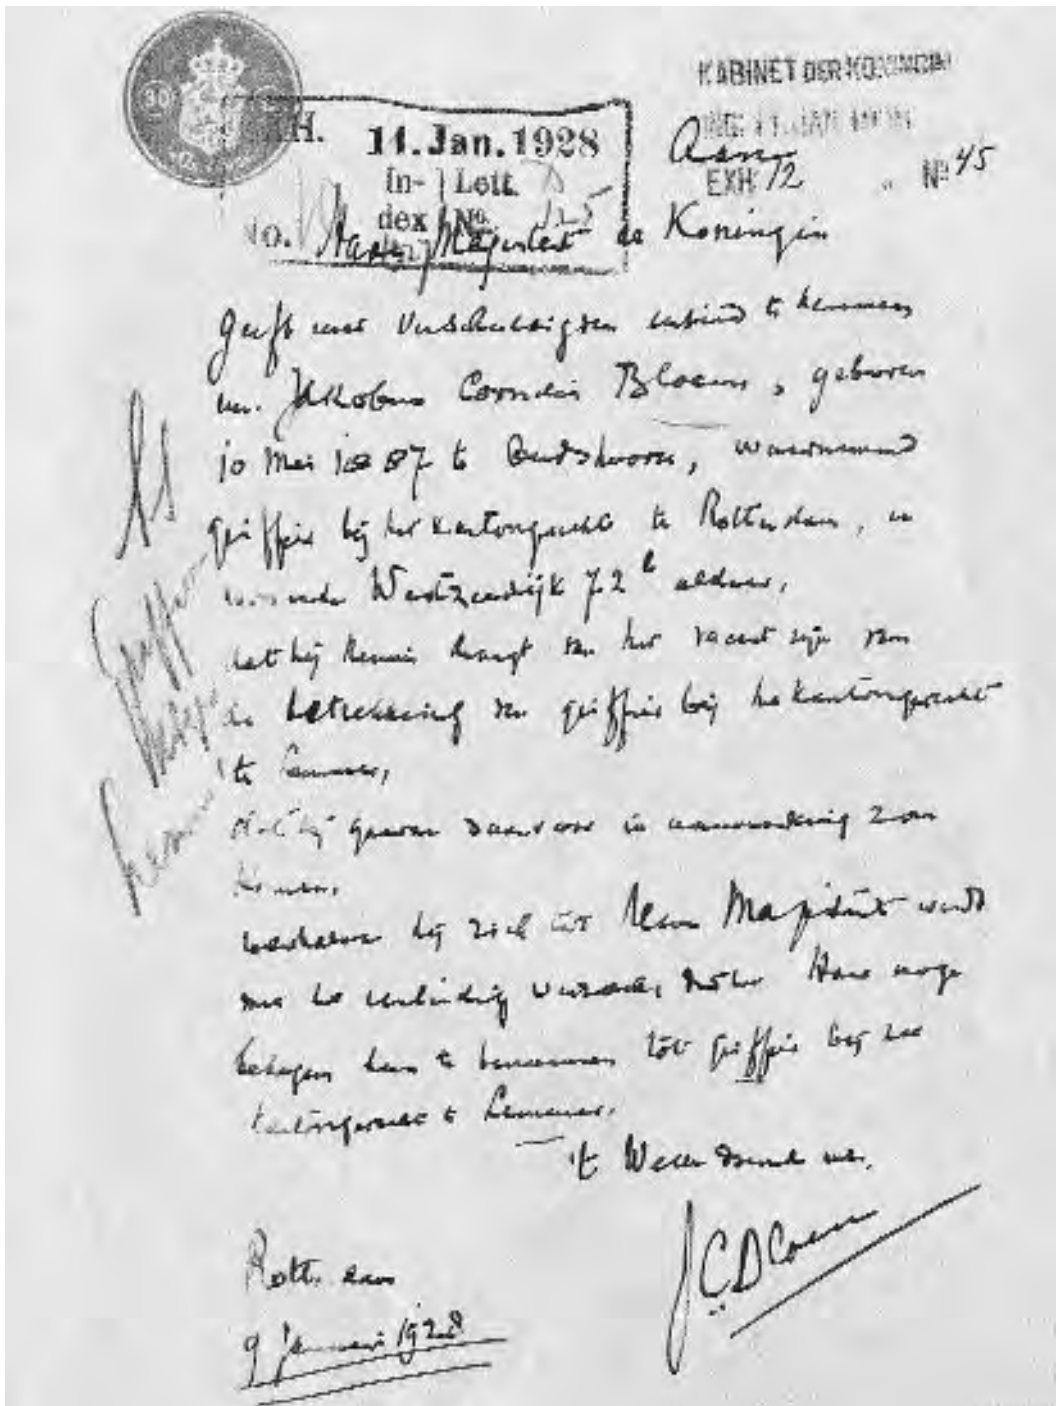 KABINET DER KONINGIN
11. Jan. 1928
In- Lett.
dex No.
No.
EXH 12 No 45
Aan
Hare Majesteit de Koningin
Geeft met verschuldigden eerbied te kennen
mr. Jakobus Cornelis Bloem, geboren
10 Mei 1887 te Oudshoorn, waarnemend
griffier bij het kantongerecht te Rotterdam, en
wonende Westzeedijk 72b aldaar,
dat hij kennis draagt van het vacant zijn van
de betrekking van griffier bij het kantongerecht
te Lemmer,
dat hij gaarne daarvoor in aanmerking zou
komen,
weshalve hij zich tot Uwe Majesteit wendt
met het eerbiedig verzoek, dat het Haar moge
behagen hem te benoemen tot griffier bij het
kantongerecht te Lemmer.
't Welk doende enz.
JCBloem
Rotterdam
9 Januari 1928